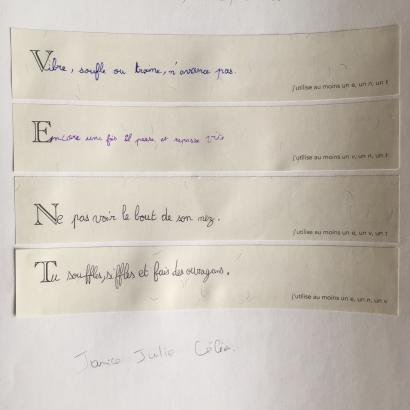 Vibre, soufle ou traine, n'avance pas.
j'utilise au moins un e, un n, un t
Encore une fois il passe, et repasse vrio
j'utilise au moins un v, un n, un t
Ne pas voir le bout de son nez.
j'utilise au moins un e, un v, un t
Tu souffles, siffles et fais des ouragans.
j'utilise au moins un e, un n, un v
Janice Julie Célia.